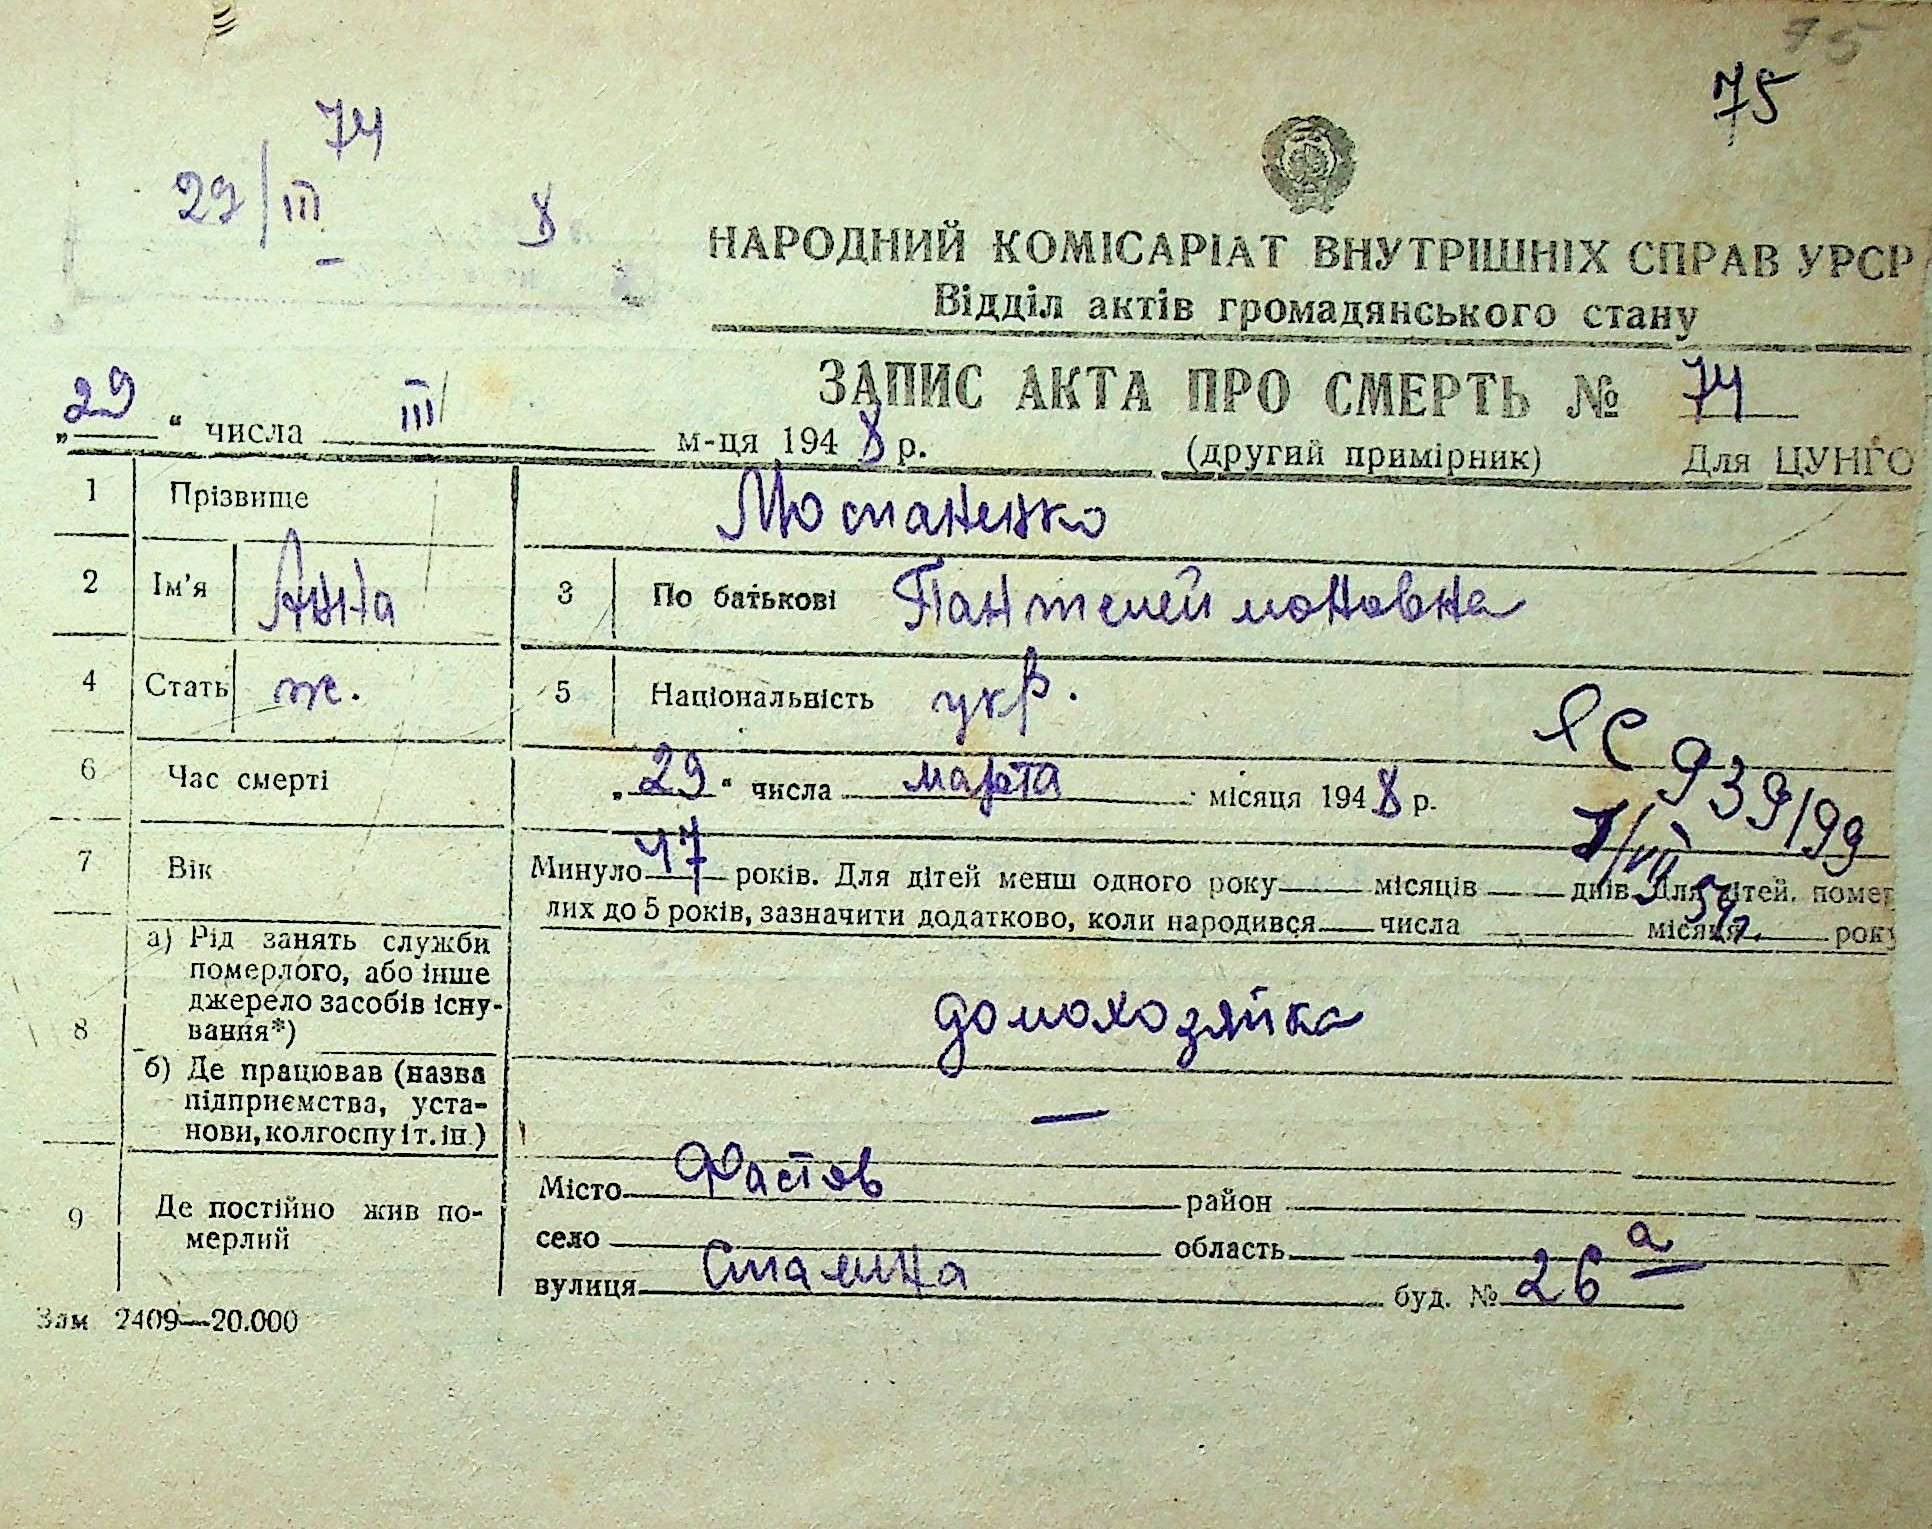 75
75
74
29/III 8
НАРОДНИЙ КОМІСАРІАТ ВНУТРІШНІХ СПРАВ УРСР
Відділ актів громадянського стану
ЗАПИС АКТА ПРО СМЕРТЬ № 74
„29“ числа III м-ця 1948 р. (другий примірник) Для ЦУНГО
1 Прізвище Мостаненко
2 Ім'я Анна 3 По батькові Пантелеймоновна
4 Стать ж. 5 Національність укр.
6 Час смерті „29“ числа марта місяця 1948 р.
ЯС 939199
1/VII 54г.
7 Вік Минуло 47 років. Для дітей менш одного року місяців днів Для дітей, помер
лих до 5 років, зазначити додатково, коли народився числа місяця року
8 а) Рід занять служби
померлого, або інше
джерело засобів існу-
вання*) домохозяйка
б) Де працював (назва
підприємства, уста-
нови, колгоспу і т. ін.) —
9 Де постійно жив по-
мерлий
Місто Фастов район
село область
вулиця Сталина буд. № 26а
Зам 2409—20.000